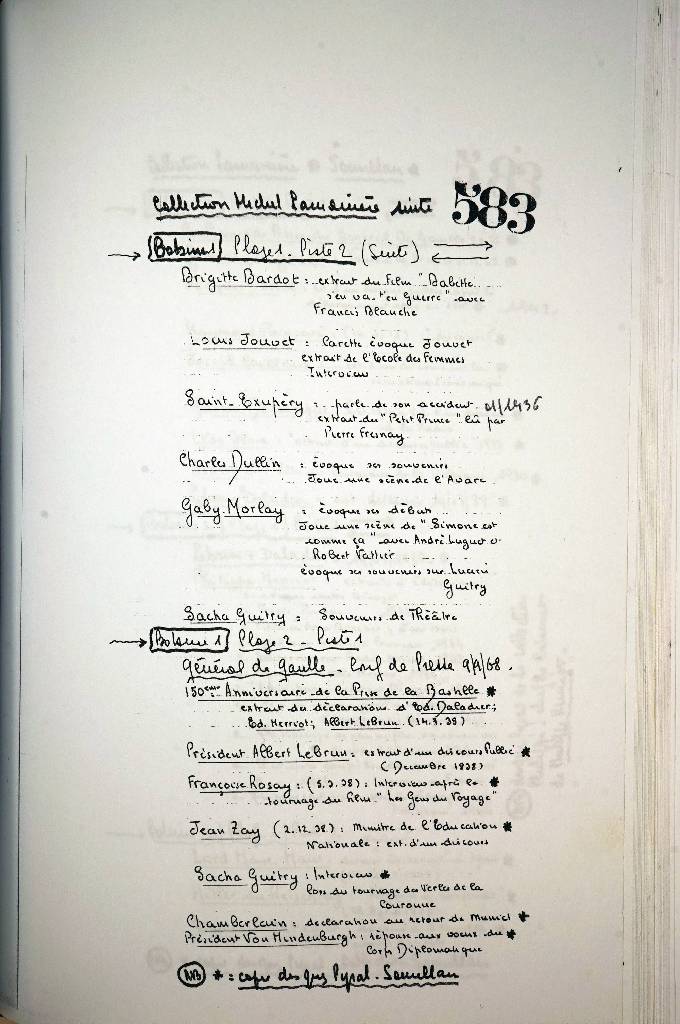 Collection Michel suite 583
→ Bobine 1 Plage 1 - Piste 2 (Suite)
Brigitte Bardot : extrait du Film "Babette
s'en va-t'en Guerre" avec
Francis Blanche
Louis Jouvet : Carette évoque Jouvet
extrait de l'Ecole des Femmes
Interview
Saint-Exupéry : parle de son accident 01/1936
extrait du "Petit Prince" lu par
Pierre Fresnay
Charles Dullin : évoque ses souvenirs
Joue une scène de l'Avare
Gaby Morlay : évoque ses débuts
Joue une scène de "Simone est
comme ça" avec André Luguet &
Robert Vattier
évoque ses souvenirs sur Lucien
Guitry
Sacha Guitry : Souvenirs de Théâtre
→ Bobine 1 Plage 2 - Piste 1
Général de Gaulle - Conf de Presse 9/9/68.
150ème Anniversaire de la Prise de la Bastille *
extrait des déclarations d'Ed. Daladier;
Ed. Herriot; Albert LeBrun (14.7.39)
Président Albert LeBrun : extrait d'un discours Public *
(Decembre 1938)
Françoise Rosay : (5.3.38) : Interview après le *
tournage du film "Les Gens du Voyage"
Jean Zay (2.12.38) : Ministre de l'Education *
Nationale : ext. d'un discours
Sacha Guitry : Interview *
lors du tournage des Perles de la
Couronne
Chamberlain : declaration au retour de Munich *
Président Von Hindenburgh : réponse aux voeux du *
Corps Diplomatique
NB * = copie des Pyral - Semillan